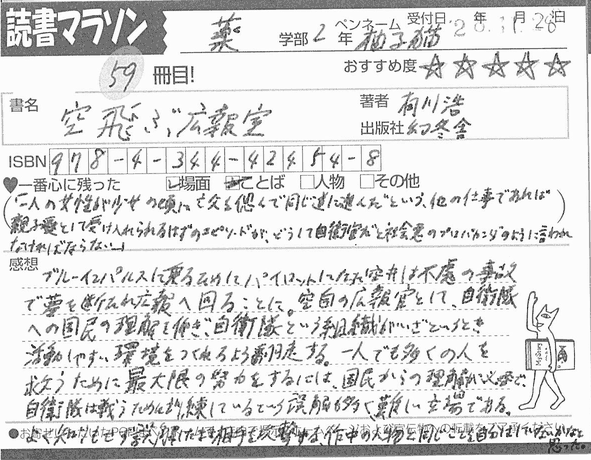 読書マラソン
薬 学部 2 年 ペンネーム 柚子猫 受付日 28年11月28日
59 冊目! おすすめ度 ☆☆☆☆☆
書名 空飛ぶ広報室
著者 有川浩
出版社 幻冬舎
ISBN 978-4-344-42454-8
♥一番心に残った □場面 □ことば □人物 □その他
(「一人の女性が少女の頃に亡き父を偲んで同じ道に進んだという、他の仕事であれば
親子愛として受け入れられるはずのエピソードが、どうして自衛官だと社会悪のプロパガンダのように言われ
なければならない。」)
感想
ブルーインパルスに乗るためにパイロットになった空井は不慮の事故
で夢を断たれ広報へ回ることに。空自の広報官として、自衛隊
への国民の理解を仰ぎ、自衛隊という組織がいざというとき
活動しやすい環境をつくれるよう奔走する。一人でも多くの人を
救うために最大限の努力をするには、国民からの理解が必要で、
自衛隊は戦うために訓練しているという誤解も多く難しい立場である。
よく知りもせず誤解したまま相手を攻撃する、作中の人物と同じことを自分はしていないかなと
思った。